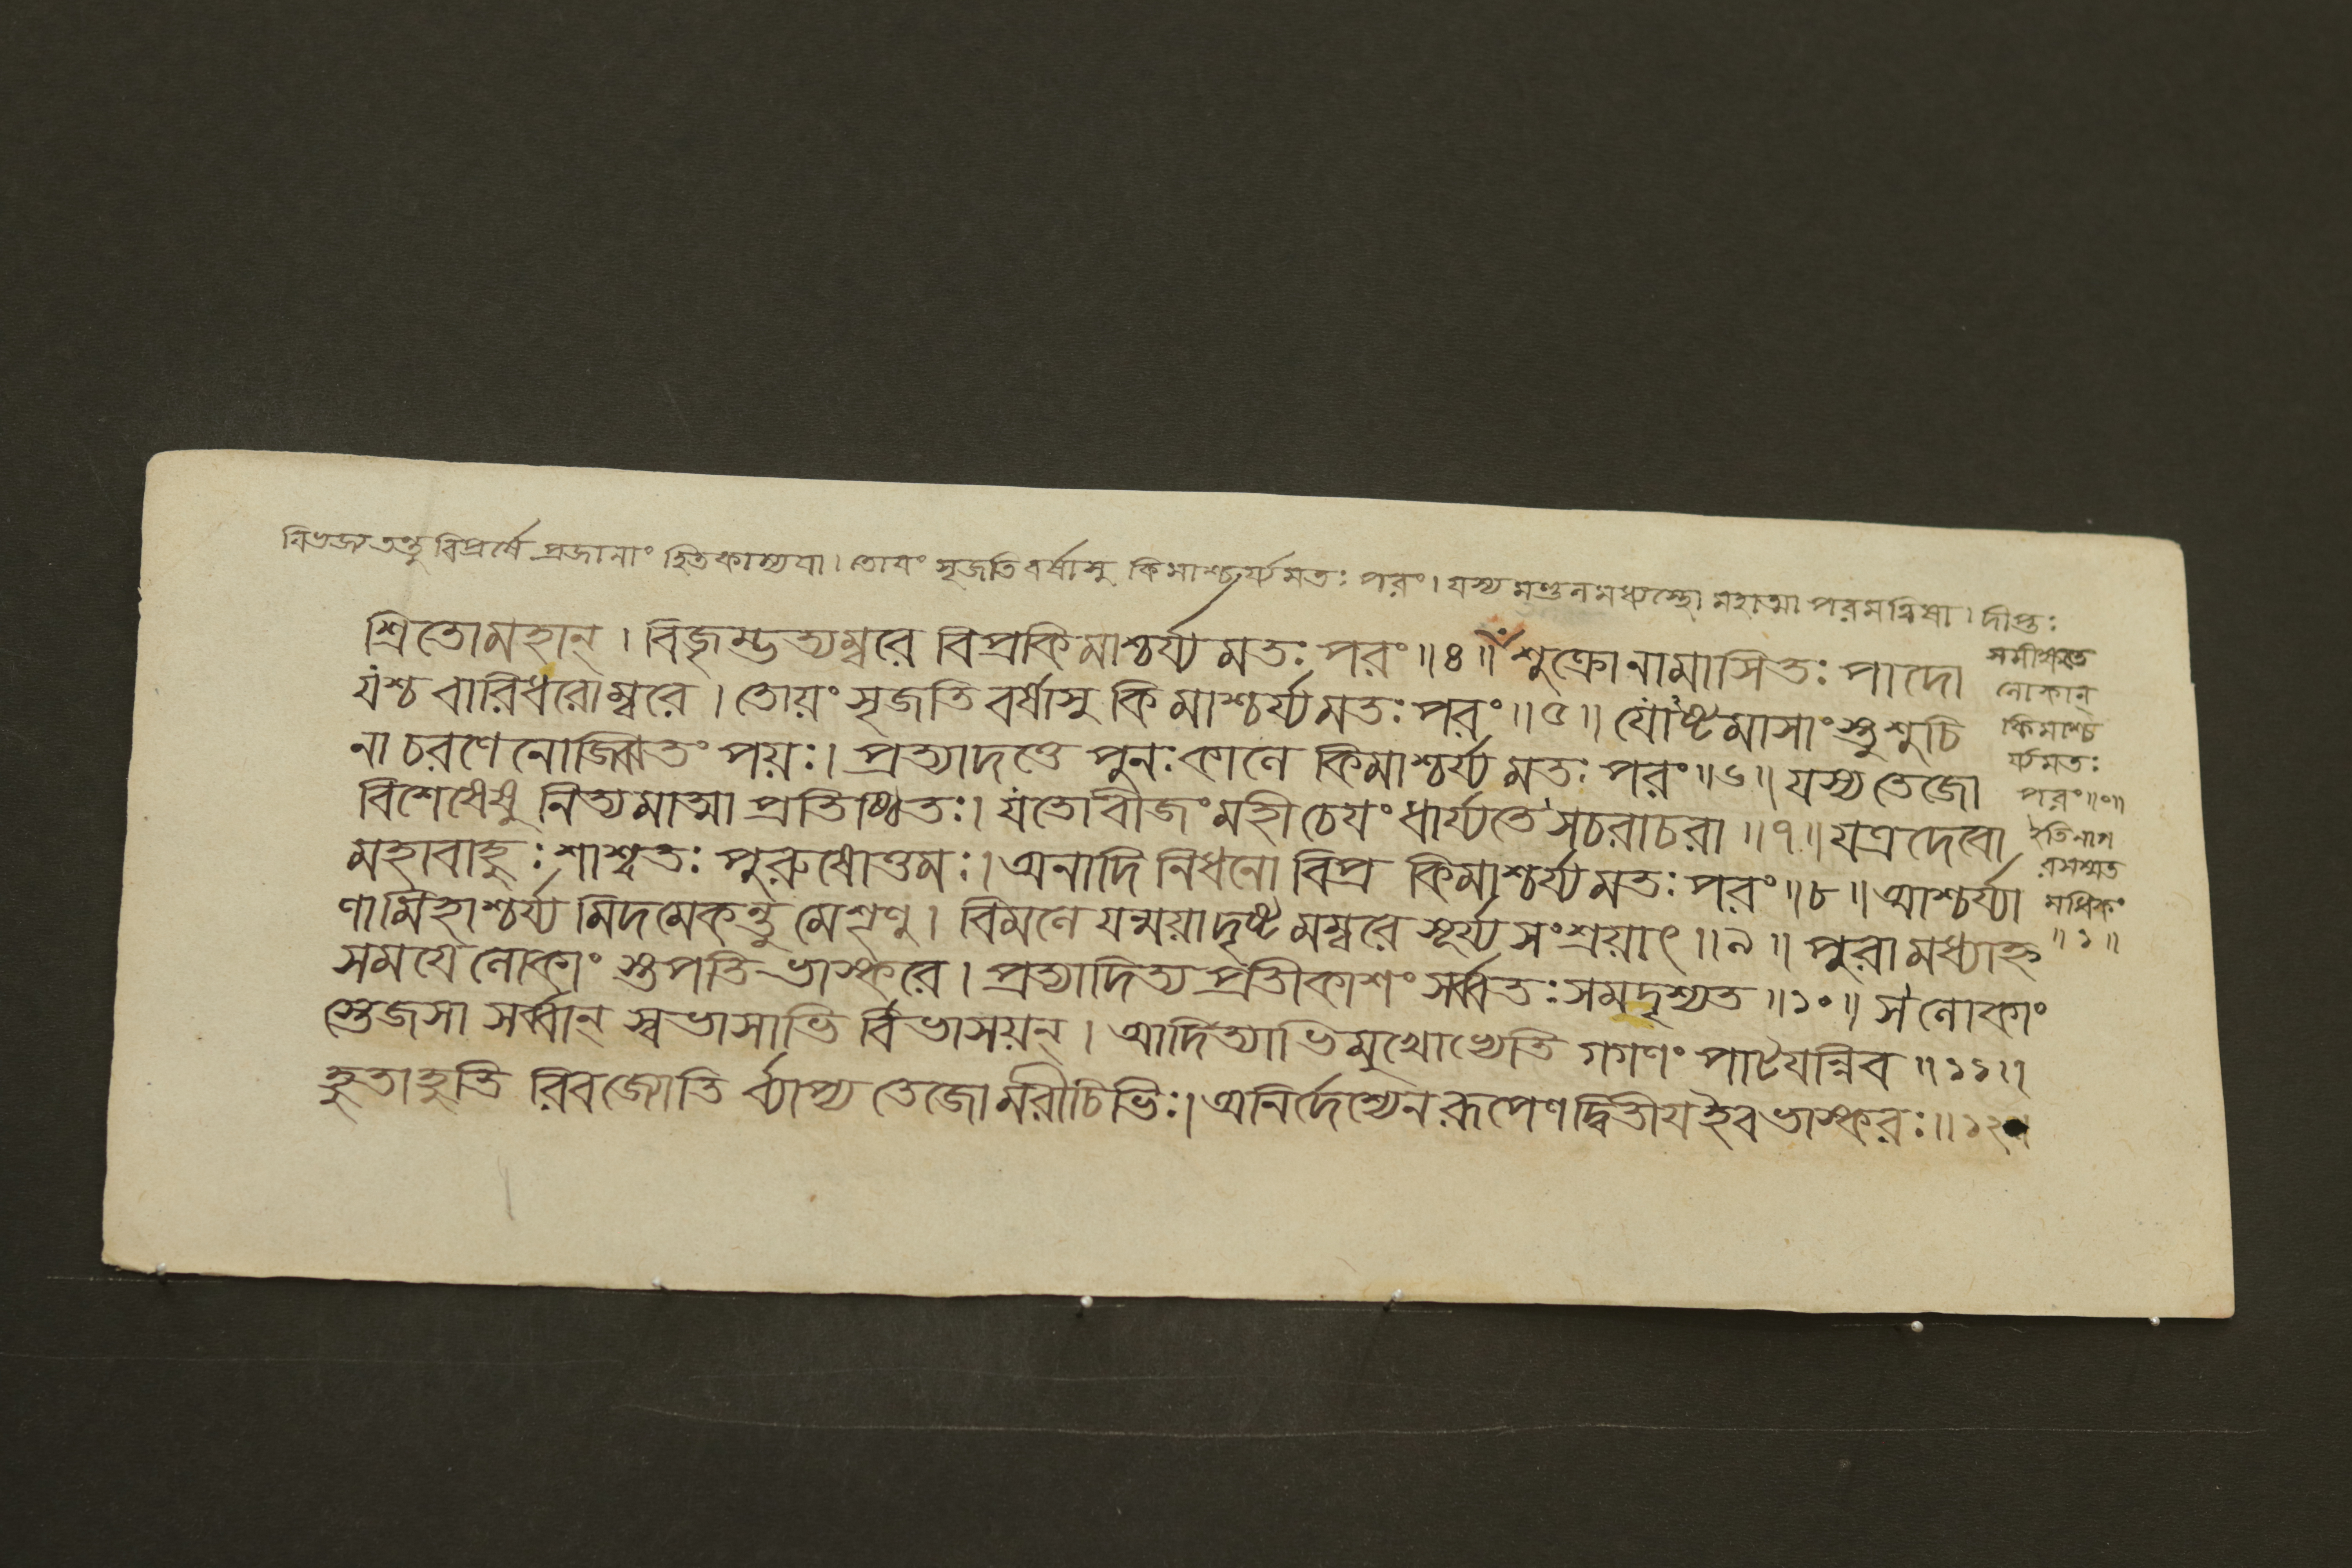 বিভজ্য তন্তু বিপ্রর্ষে প্রজানাং হিতকাম্যযা। তোযং সৃজতি বর্ষাসু কিমাশ্চর্য্যমতঃ পরং। যস্য মণ্ডলমধ্যস্থো মহাত্মা পরমত্বিষা। দীপ্তঃ
সমীক্ষতে
লোকান্
কিমাশ্চ
র্য্যমতঃ
পরং॥০॥
ইতি
মধিকং
॥১॥
শ্রিতোমহান্। বিজৃম্ভত্যম্বরে বিপ্রকিমাশ্চর্য্যমতঃ পরং॥৪॥ শুক্রোনামাসিতঃ পাদো
যশ্চ বারিধরোম্বরে। তোয়ং সৃজতি বর্ষাসু কিমাশ্চর্য্যমতঃ পরং॥৫॥ যোঽষ্টমাসাংস্তু শুচি
না চরণেনোজ্ঝিতং পয়ঃ। প্রত্যাদত্তে পুনঃ কালে কিমাশ্চর্য্যমতঃ পরং॥৬॥ যস্য তেজো
বিশেষেষু নিত্যমাত্মা প্রতিষ্ঠিতঃ। যতোবীজং মহীচেযং ধার্য্যতে সচরাচরা॥৭॥ যত্র দেবো
মহাবাহুঃ শাশ্বতঃ পুরুষোত্তমঃ। অনাদি নিধনো বিপ্র কিমাশ্চর্য্যমতঃ পরং॥৮॥ আশ্চর্য্যা
ণামিহাশ্চর্য্যমিদমেকন্তু মে শৃণু। বিমলে যন্ময়াদৃষ্টমম্বরে সূর্য্যসংশ্রয়াৎ॥৯॥ পুরামধ্যাহ্ন
সমযে লোকাং স্তপতি ভাস্করে। প্রত্যাদিত্য প্রতীকাশং সর্ব্বতঃ সমদৃশ্যত॥১০॥ স লোকাং
স্তেজসা সর্ব্বান্ স্বভাসাভি র্বিভাসয়ন্। আদিত্যাভিমুখোভ্যেতি গগণং পাটযন্নিব॥১১॥
হুতাহুতি রিবজ্যোতি র্ব্যাপ্য তেজোমরীচিভিঃ। অনির্দেশ্যেনরূপেণদ্বিতীযইবভাস্করঃ॥১২॥